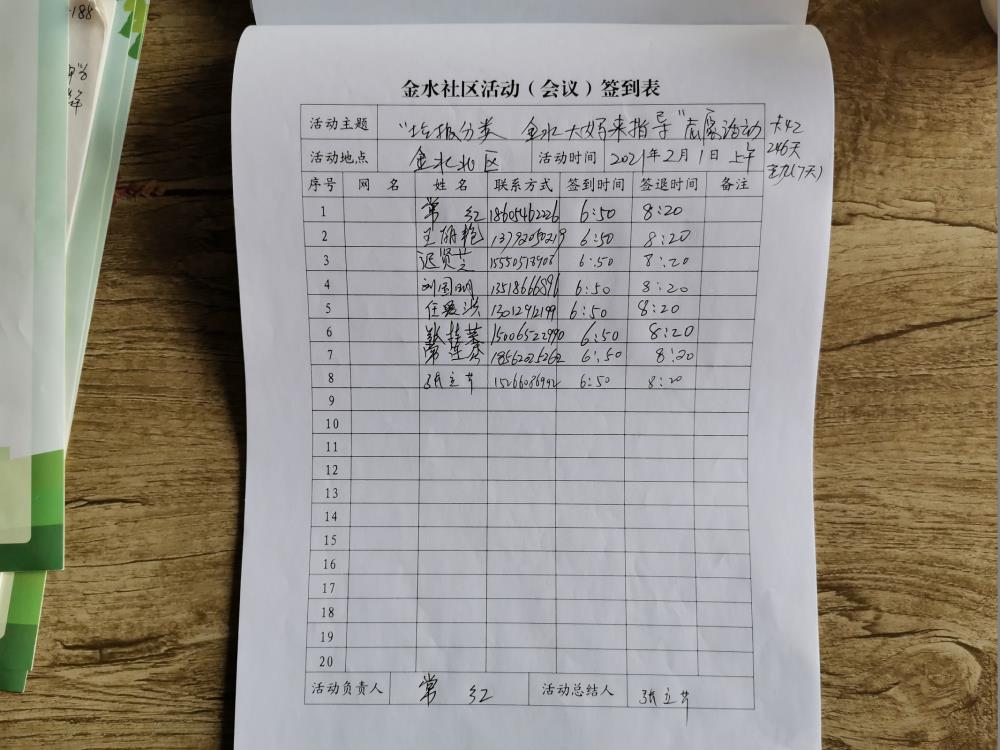 188
金水社区活动（会议）签到表
活动主题 “垃圾分类 金水大妈来指导”志愿活动
活动地点 金水北区 活动时间 2021年2月1日 上午
246天
(7天)
序号 网 名 姓 名 联系方式 签到时间 签退时间 备注
1 常 红 18605462226 6:50 8:20
2 王丽艳 13792050219 6:50 8:20
3 迟贤兰 6:50 8:20
4 刘国明 13518666896 6:50 8:20
5 任爱洪 13012912199 6:50 8:20
6 张桂菊 15006522990 6:50 8:20
7 常连芬 6:50 8:20
8 张立芹 15266086992 6:50 8:20
9
10
11
12
13
14
15
16
17
18
19
20
活动负责人 常 红 活动总结人 张立芹